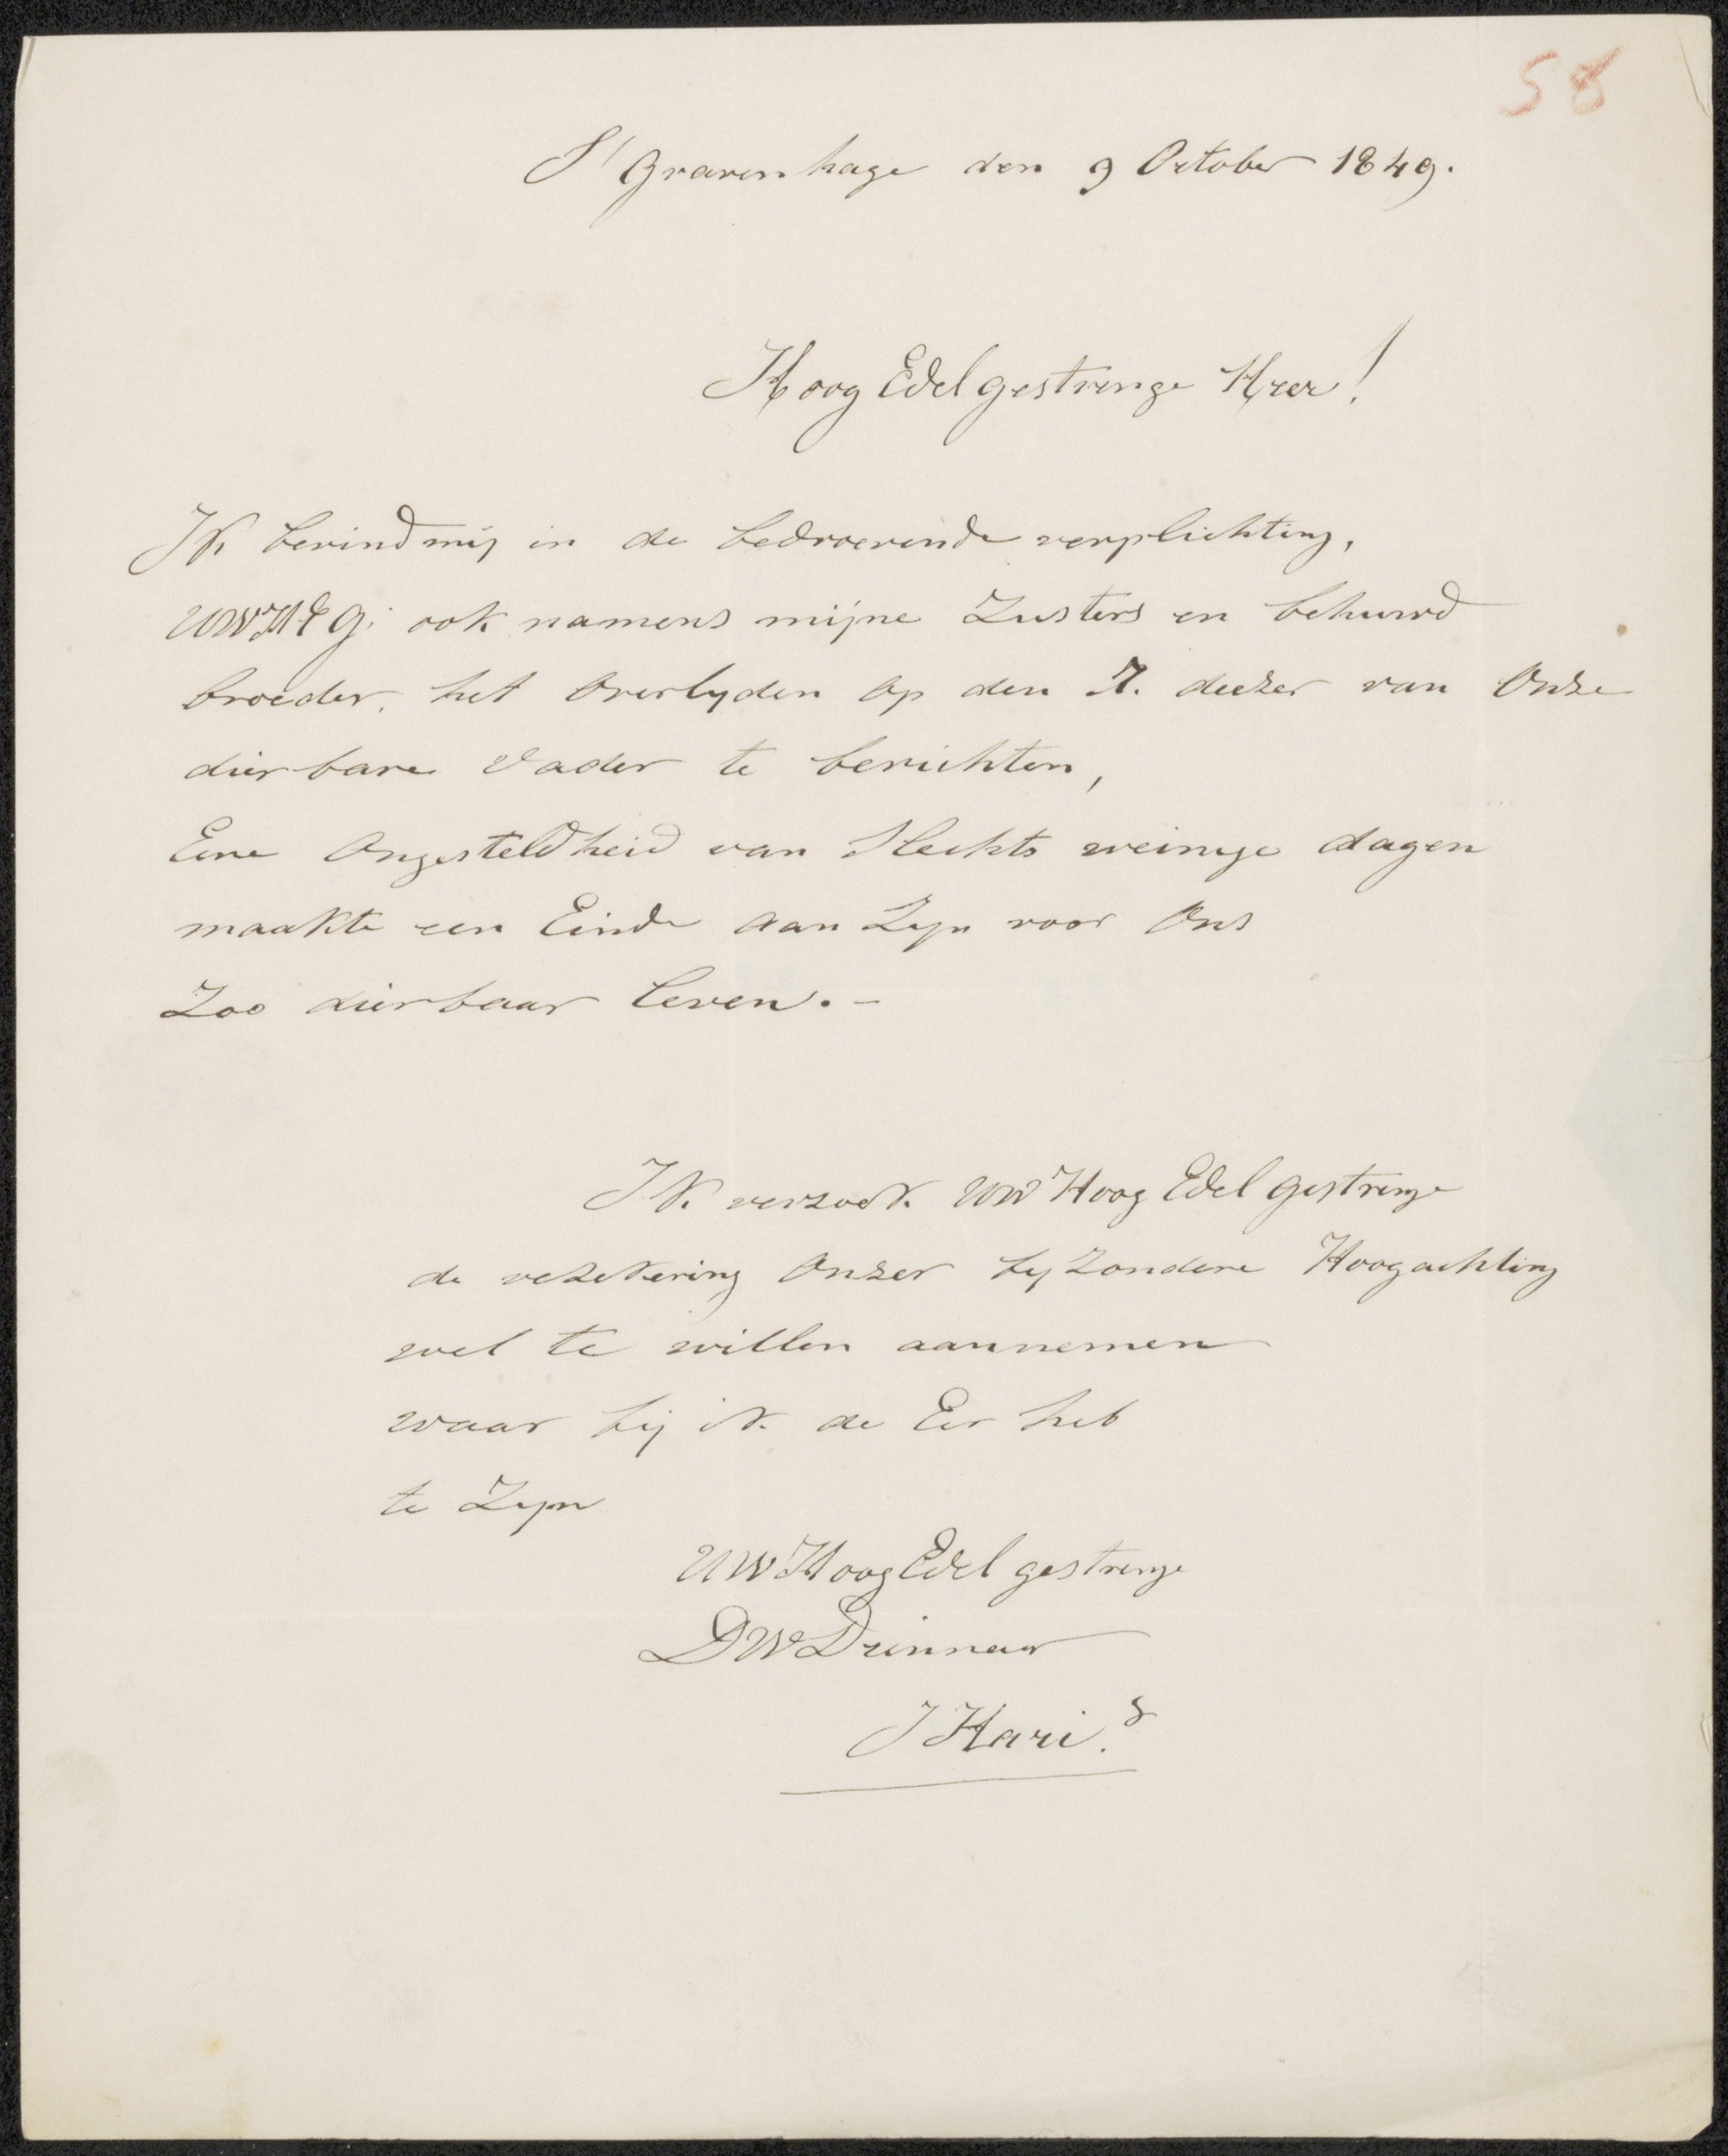 58
S'Gravenhage den 9 October 1849.
Hoog Edel gestrenge Heer!
Ik bevind mij in de bedroevende verplichting,
UWHEG; ook namens mijne Zusters en behuwd
broeder, het Overlyden op den 7. deezer van Onze
dierbare Vader te berichten,
Eene Ongesteldheid van Slechts weinige dagen
maakte een Einde aan Zyn voor Ons
Zoo dierbaar leven. -
Ik verzoek UW Hoog Edel gestrenge
de vezekering Onzer byzondere Hoogachting
wel te willen aannemen
waar bij ik de Eer heb
te Zyn
UW Hoog Edel gestrenge
DW Dienaar
J Hari.